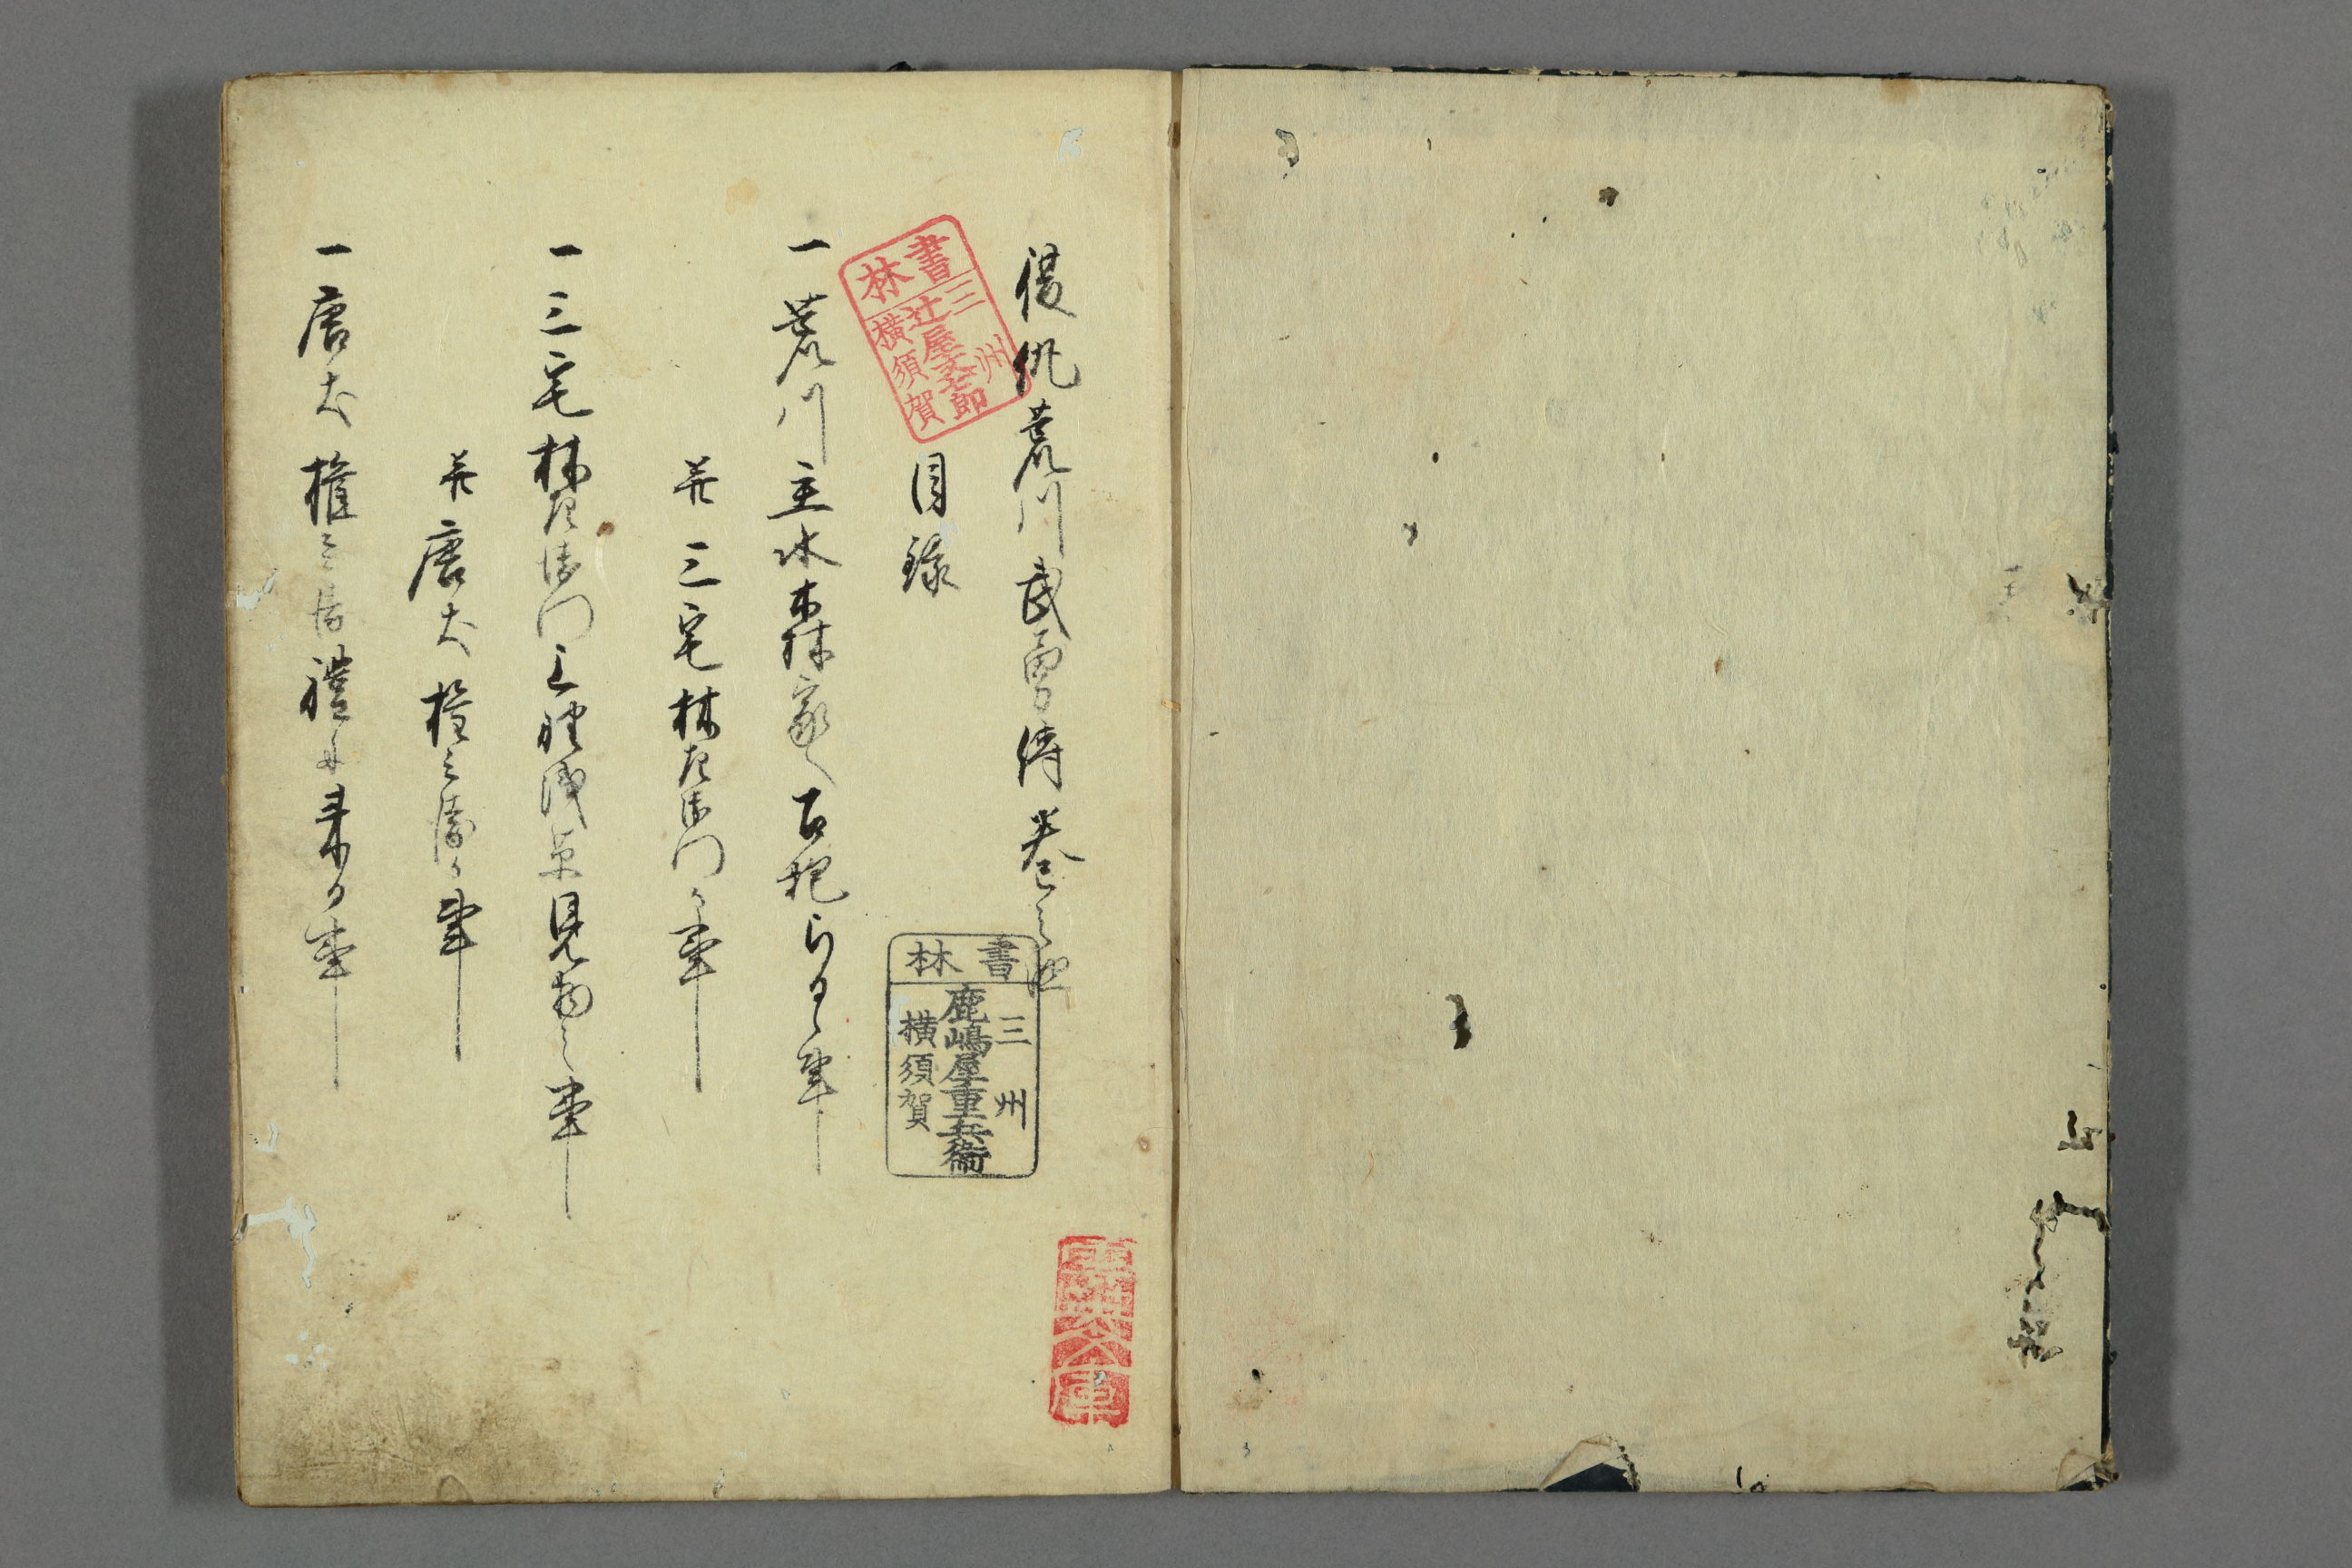 復仇荒川武勇傳巻之四
目録
一荒川主水森家へ召抱らるゝ事
并三宅林左衛門か事
一三宅林左衛門上野浅草見物之事
并唐犬権之儀か事
一唐犬権之儀禮に来る事
書林
三州
辻屋文吉郎
横須賀
書林
三州
鹿嶋屋重兵衛
横須賀